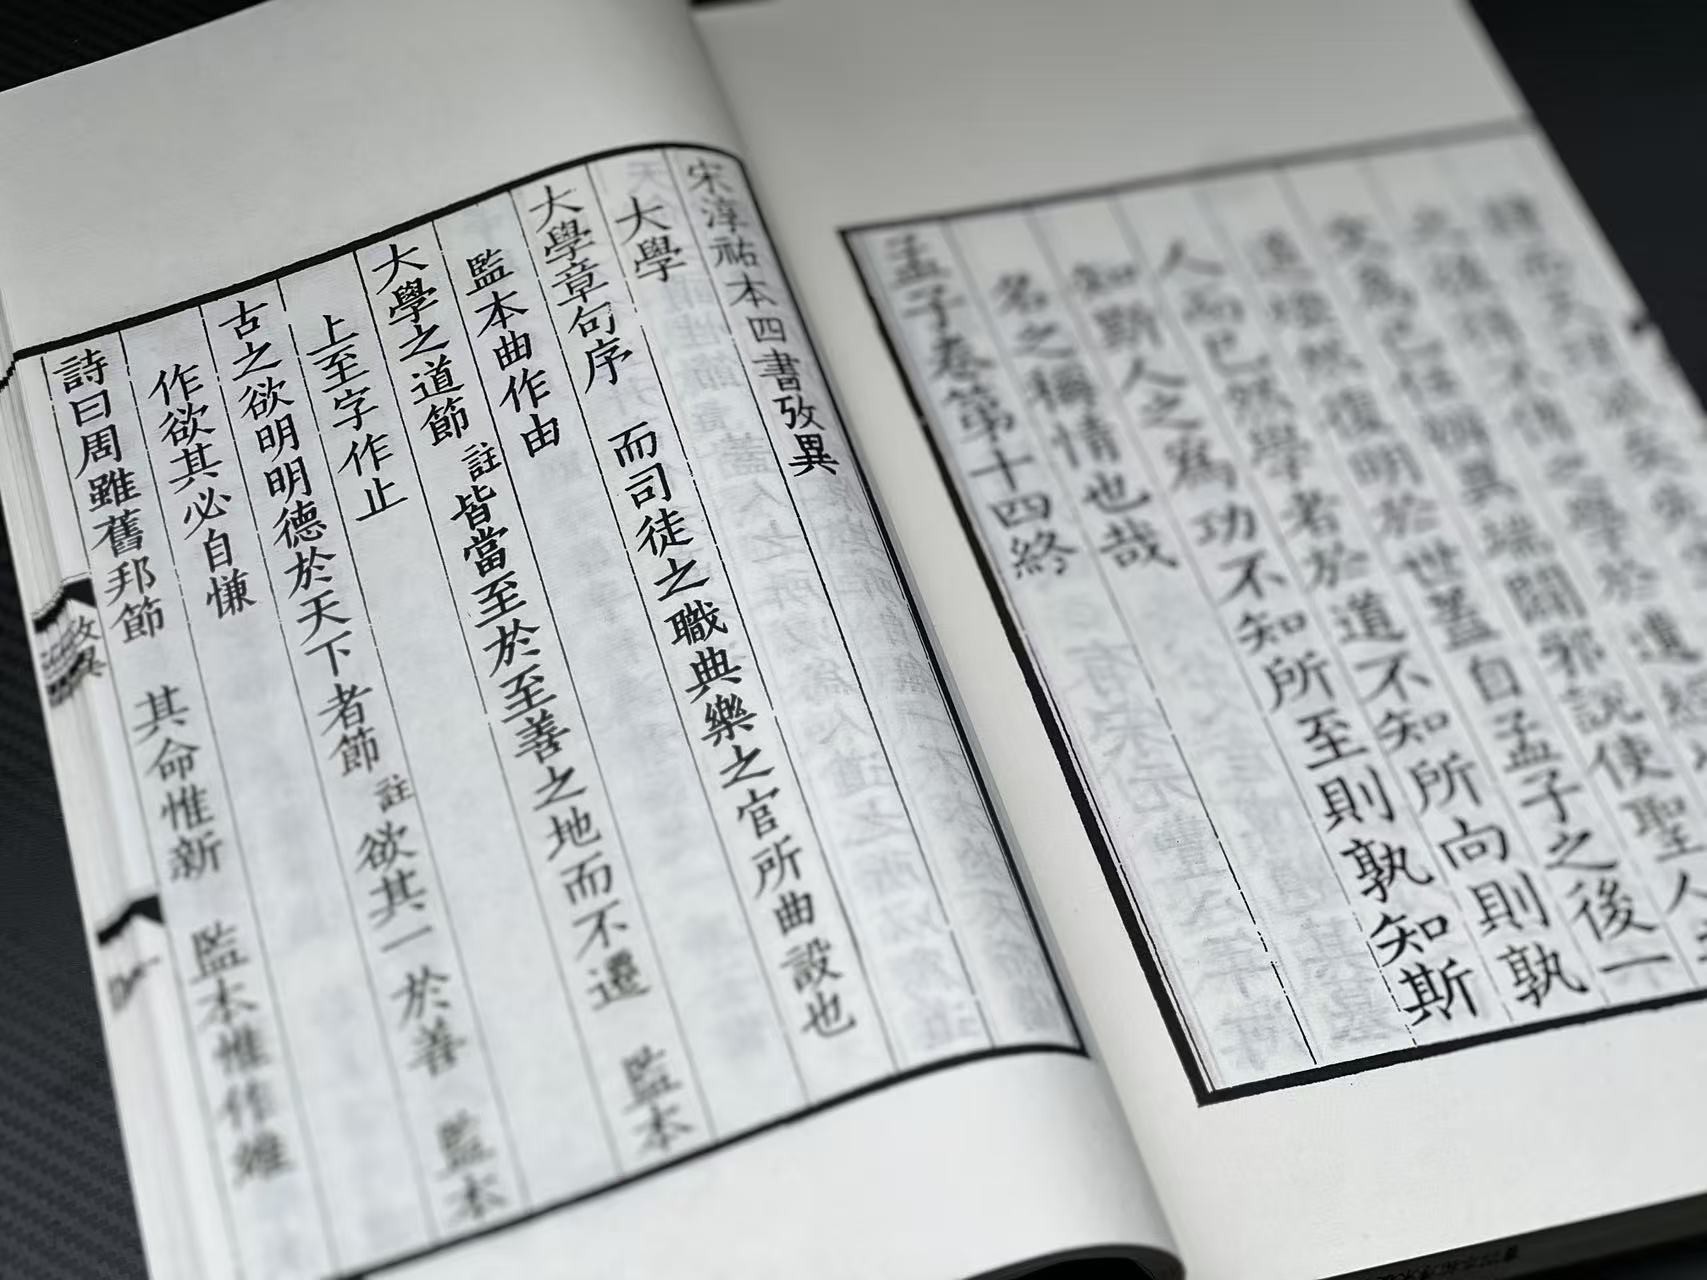 天理滅矣
得不傳之學於遺經
文爲己任辨異端闢邪説使聖人
道煥然復明於世蓋自孟子之後一
人而已然學者於道不知所向則孰
知斯人之爲功不知所至則孰知斯
名之稱情也哉
孟子卷第十四終
宋淳祐本四書攷異
大學
大學章句序　而司徒之職典樂之官所曲設也
監本曲作由
大學之道節　註皆當至於至善之地而不遷　監本
上至字作止
古之欲明明德於天下者節　註欲其一於善　監本
作欲其必自慊
詩曰周雖舊邦節　其命惟新　監本惟作維
攷異